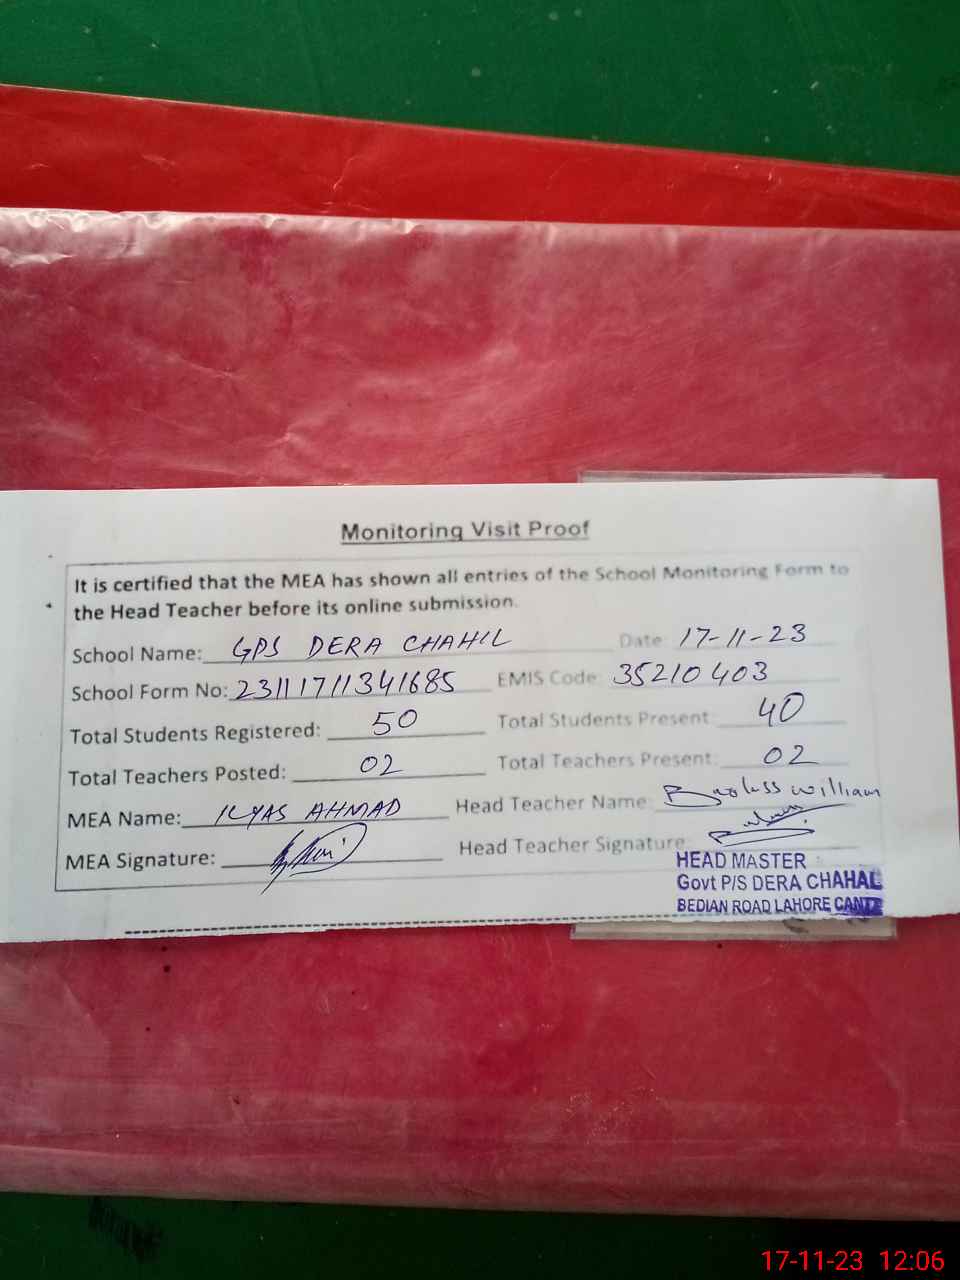 Monitoring Visit Proof
It is certified that the MEA has shown all entries of the School Monitoring Form to
the Head Teacher before its online submission.
School Name: GPS DERA CHAHIL Date: 17-11-23
School Form No: 23111711341685 EMIS Code: 35210403
Total Students Registered: 50 Total Students Present: 40
Total Teachers Posted: 02 Total Teachers Present: 02
MEA Name: ILYAS AHMAD Head Teacher Name: William
MEA Signature: Head Teacher Signature:
HEAD MASTER
Govt P/S DERA CHAHAL
BEDIAN ROAD LAHORE CANTT
17-11-23 12:06